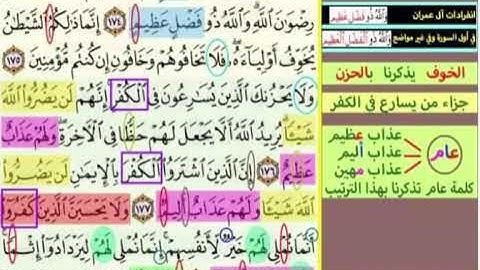 رِضْوَٰنَ ٱللَّهِ وَٱللَّهُ ذُو فَضْلٍ عَظِيمٍ ١٧٤ إِنَّمَا ذَٰلِكُمُ ٱلشَّيْطَٰنُ
يُخَوِّفُ أَوْلِيَآءَهُۥ فَلَا تَخَافُوهُمْ وَخَافُونِ إِن كُنتُم مُّؤْمِنِينَ ١٧٥
وَلَا يَحْزُنكَ ٱلَّذِينَ يُسَٰرِعُونَ فِى ٱلْكُفْرِ إِنَّهُمْ لَن يَضُرُّوا۟ ٱللَّهَ
شَيْـًٔا يُرِيدُ ٱللَّهُ أَلَّا يَجْعَلَ لَهُمْ حَظًّا فِى ٱلْـَٔاخِرَةِ وَلَهُمْ عَذَابٌ
عَظِيمٌ ١٧٦ إِنَّ ٱلَّذِينَ ٱشْتَرَوُا۟ ٱلْكُفْرَ بِٱلْإِيمَٰنِ لَن يَضُرُّوا۟
ٱللَّهَ شَيْـًٔا وَلَهُمْ عَذَابٌ أَلِيمٌ ١٧٧ وَلَا يَحْسَبَنَّ ٱلَّذِينَ كَفَرُوٓا۟
أَنَّمَا نُمْلِى لَهُمْ خَيْرٌ لِّأَنفُسِهِمْ إِنَّمَا نُمْلِى لَهُمْ لِيَزْدَادُوٓا۟ إِثْمًا
انفرادات آل عمران وَٱللَّهُ ذُو فَضْلٍ عَظِيمٍ
في أول السورة وفي غير مواضع وَٱللَّهُ ذُو ٱلْفَضْلِ ٱلْعَظِيمِ
الخوف يذكرنا بالحزن
جزاء من يسارع في الكفر
عذاب عظيم
عذاب أليم
عذاب مهين
عام
كلمة عام تذكرنا بهذا الترتيب